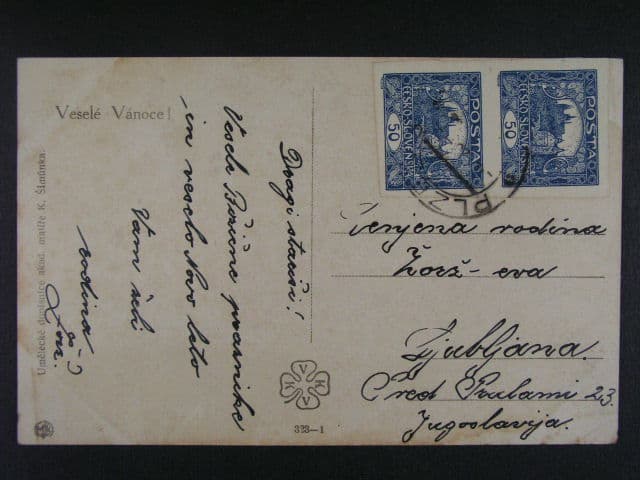 Veselé Vánoce!
Umělecké dopisnice akad. malíře K. Šimůnka.
Dragi starši!
Vesele Božične praznike
in veselo Novo leto
Vam želi
rodina
POSTA
ČESKO-SLOVENSKÁ
50
POSTA
ČESKO-SLOVENSKÁ
50
PLZ
Cenjena rodina
Ljubljana.
Pred Prulami 23.
Jugoslavija.
V
K
K
V
323—1